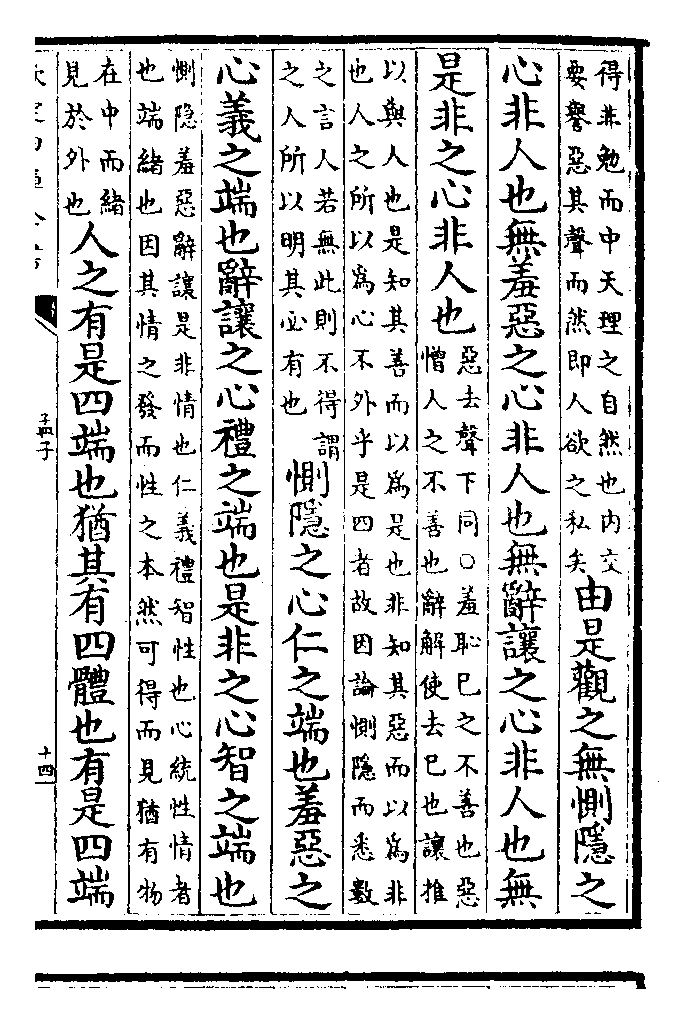 得非勉而中天理之自然也内交
要譽惡其聲而然即人欲之私矣
由是觀之無惻隱之
心非人也無羞惡之心非人也無辭讓之心非人也無
是非之心非人也
惡去聲下同○羞恥已之不善也惡
憎人之不善也辭解使去已也讓推
以與人也是知其善而以為是也非知其惡而以為非
也人之所以為心不外乎是四者故因論惻隱而悉數
之言人若無此則不得謂
之人所以明其必有也
惻隱之心仁之端也羞惡之
心義之端也辭讓之心禮之端也是非之心智之端也
惻隐羞惡辭讓是非情也仁義禮智性也心統性情者
也端緒也因其情之發而性之本然可得而見猶有物
在中而緒
見於外也
人之有是四端也猶其有四體也有是四端
孟子
十四